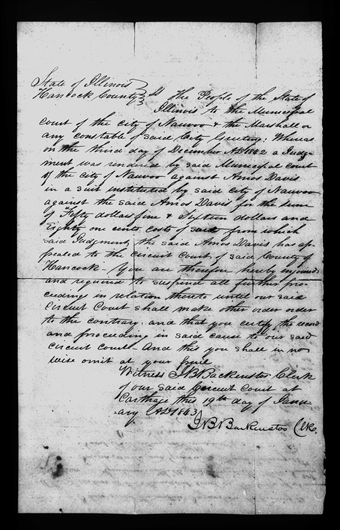 State of Illinois
Hancock County ss The People of the State of
Illinois to the Municipal
Court of the City of Nauvoo & the Marshall or
any constable of said City Greeting, Whereas
on the third day of December AD 1842 a Judg
ment was rendered by said Municipal Court
of the City of Nauvoo against Amos Davis
in a suit instituted by said City of Nauvoo
against the said Amos Davis for the sum
of Fifty dollars fine & Sixteen dollars and
Eighty one cents costs of said from which
said Judgment the said Amos Davis has ap
pealed to the Circuit Court of said County of
Hancock. You are therefore hereby enjoined
and required to suspend all further pro
ceeding in relation thereto until our said
Circuit Court shall make other order
to the contrary. and that you certify the record
and proceeding in said cause to our said
Circuit Court And this you shall in no
wise omit at your peril
Witness J.B. Backenstos Clerk
of our said Circuit Court at
Carthage this 19th day of Janu
ary AD 1843
J B Backenstos Clk.